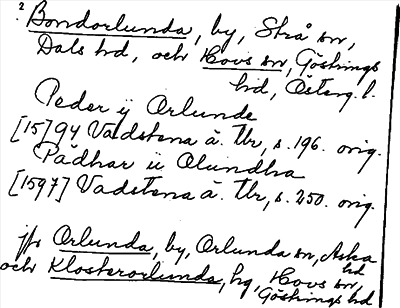 ? Bondorlunda, by, Strå sn,
Dals hd, och Hovs sn, Göstrings
hd, Österg. l.
Peder ÿ Orlunde
[15]94 Vadstena ä. Tbr, s. 196. orig.
Pädhar ii Olundha
[1597] Vadstena ä. Tbr, s. 250. orig.
jfr Orlunda, by, Orlunda sn, Aska
hd
och Klosterorlunda, hg, Hovs sn,
Göstrings hd